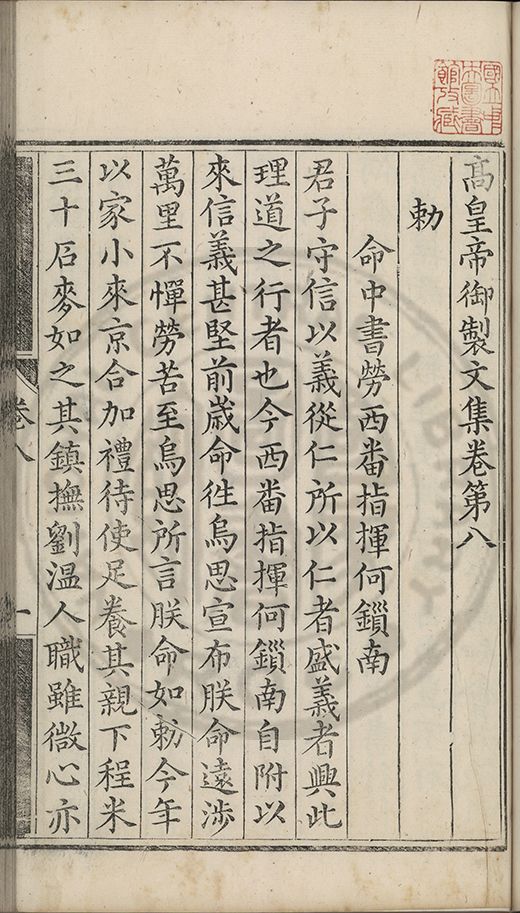 高皇帝御製文集卷第八
勅
命中書勞西番指揮何鎻南
君子守信以義從仁所以仁者盛義者興此
理道之行者也今西番指揮何鎻南自附以
來信義甚堅前歳命徃烏思宣布朕命逺渉
萬里不憚勞苦至烏思所言朕命如勅今年
以家小來京合加禮待使足養其親下程米
三十石麥如之其鎮撫劉温人職雖微心亦
卷八
一